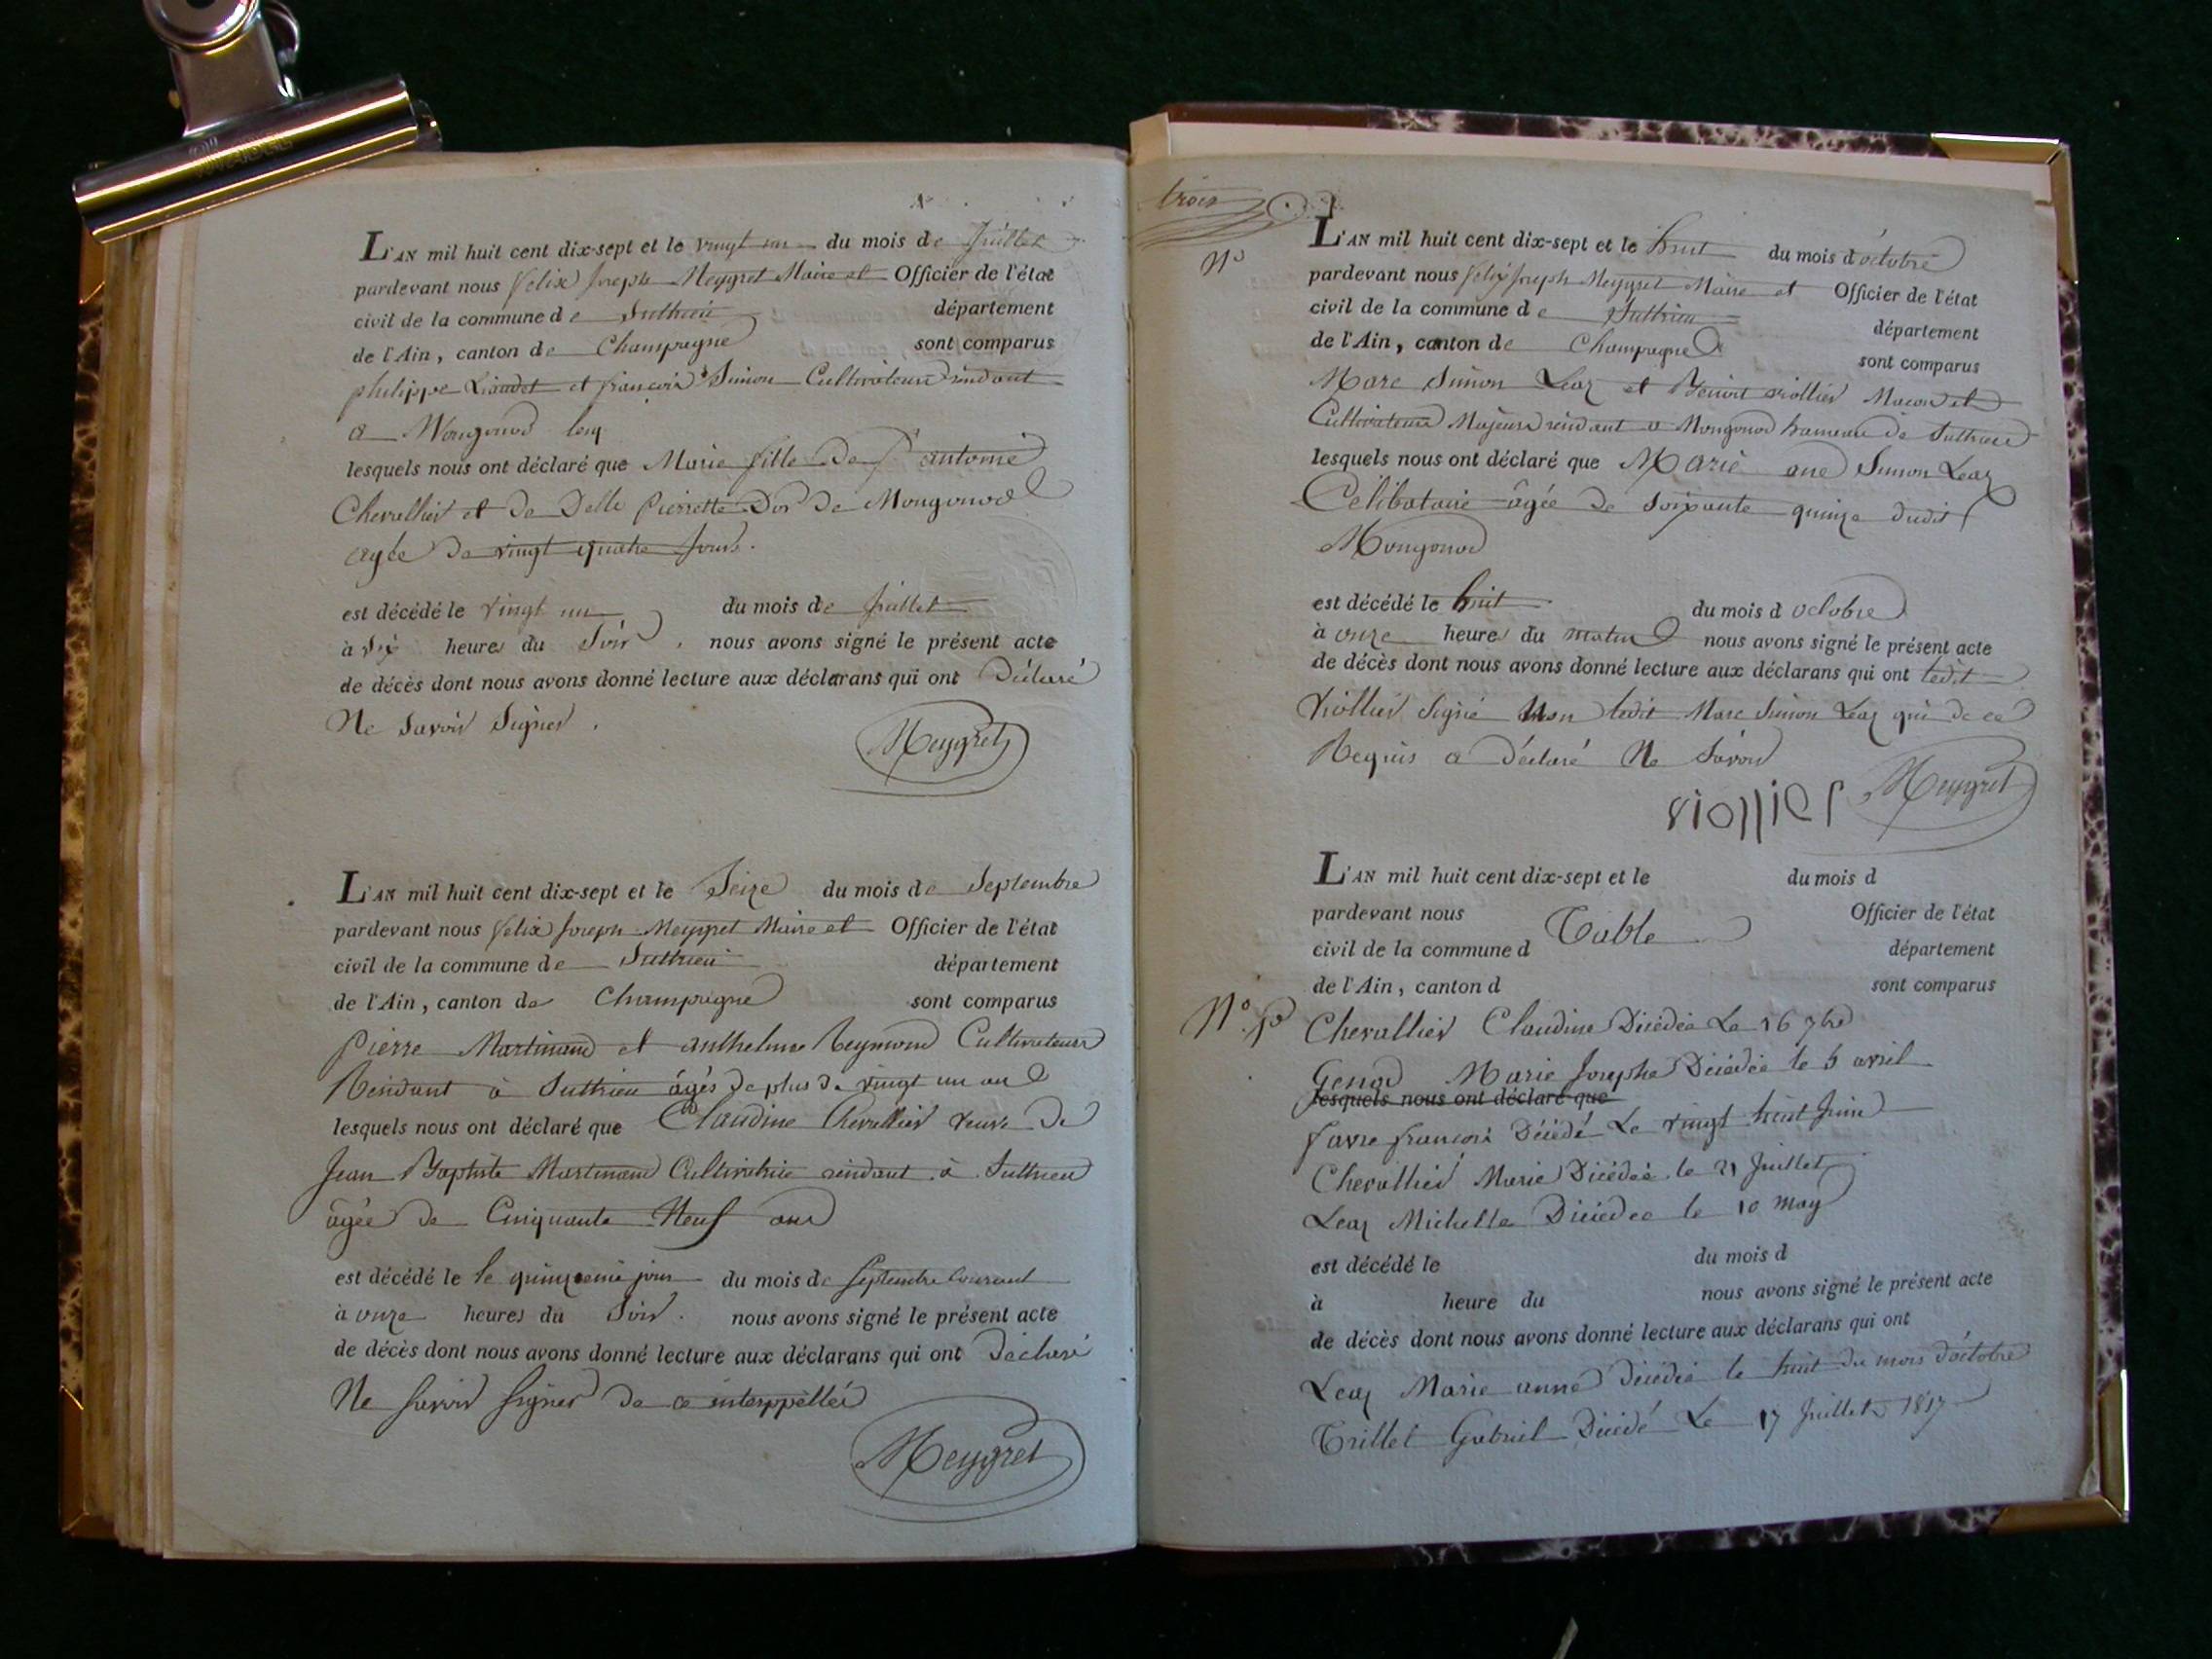 L'AN mil huit cent dix-sept et le vingt un du mois de Juillet
pardevant nous felix Joseph Meygret Maire et Officier de l'état
civil de la commune de Suthrieu département
de l'Ain, canton de Champagne sont comparus
philippe Liaudet et francois Simon Cultivateurs residant
a Mongonod
lesquels nous ont déclaré que Marie fille de Sr antoine
Chevallier et de Delle Pierrette Dor de Mongonod
agée de vingt quatre Jours.
est décédé le vingt un du mois de Juillet
à six heures du Soir, nous avons signé le présent acte
de décès dont nous avons donné lecture aux déclarans qui ont Déclaré
Ne Savoir Signer.
Meygret
L'AN mil huit cent dix-sept et le Seize du mois de Septembre
pardevant nous felix Joseph Meygret Maire et Officier de l'état
civil de la commune de Suthrieu département
de l'Ain, canton de Champagne sont comparus
Pierre Martinand et anthelme Reymond Cultivateurs
Résidant à Suthrieu âgés de plus de vingt un an
lesquels nous ont déclaré que Claudine Chevallier veuve de
Jean Baptiste Martinand Cultivatrice residant à Suthrieu
âgée de Cinquante Neuf ans
est décédé le le quinzieme jour du mois de Septembre courant
à onze heures du Soir. nous avons signé le présent acte
de décès dont nous avons donné lecture aux déclarans qui ont déclaré
Ne Savoir Signer de ce interppellés
Meygret
trois
N°
L'AN mil huit cent dix-sept et le huit du mois d'octobre
pardevant nous felix Joseph Meygret Maire et Officier de l'état
civil de la commune de Suthrieu département
de l'Ain, canton de Champagne sont comparus
Marc Simon Leaz et Benoit viollier Macon et
Cultivateurs Majeurs residant a Mongonod hameau de Suthrieu
lesquels nous ont déclaré que Marie ane Simon Leaz
Celibataire âgée de Soixante quinze dudit
Mongonod
est décédé le huit du mois d octobre
à onze heures du matin nous avons signé le présent acte
de décès dont nous avons donné lecture aux déclarans qui ont ledit
viollier Signé Non ledit Marc Simon Leaz qui de ce
Requis a déclaré Ne Savoir
viollier Meygret
L'AN mil huit cent dix-sept et le du mois d
pardevant nous Officier de l'état
Table
civil de la commune d département
de l'Ain, canton d sont comparus
N°
Chevallier Claudine Décédée Le 16 7bre
Genod Marie Josephe Décédée le 5 avril
lesquels nous ont déclaré que
favre francois Décédé Le vingt huit Juin
Chevallier Marie Décédée le 21 Juillet
Leaz Michelle Décédée le 10 may
est décédé le du mois d
à heure du nous avons signé le présent acte
de décès dont nous avons donné lecture aux déclarans qui ont
Leaz Marie anne décédée le huit du mois d'octobre
Trillet Gabriel Décédé Le 17 Juillet 1817